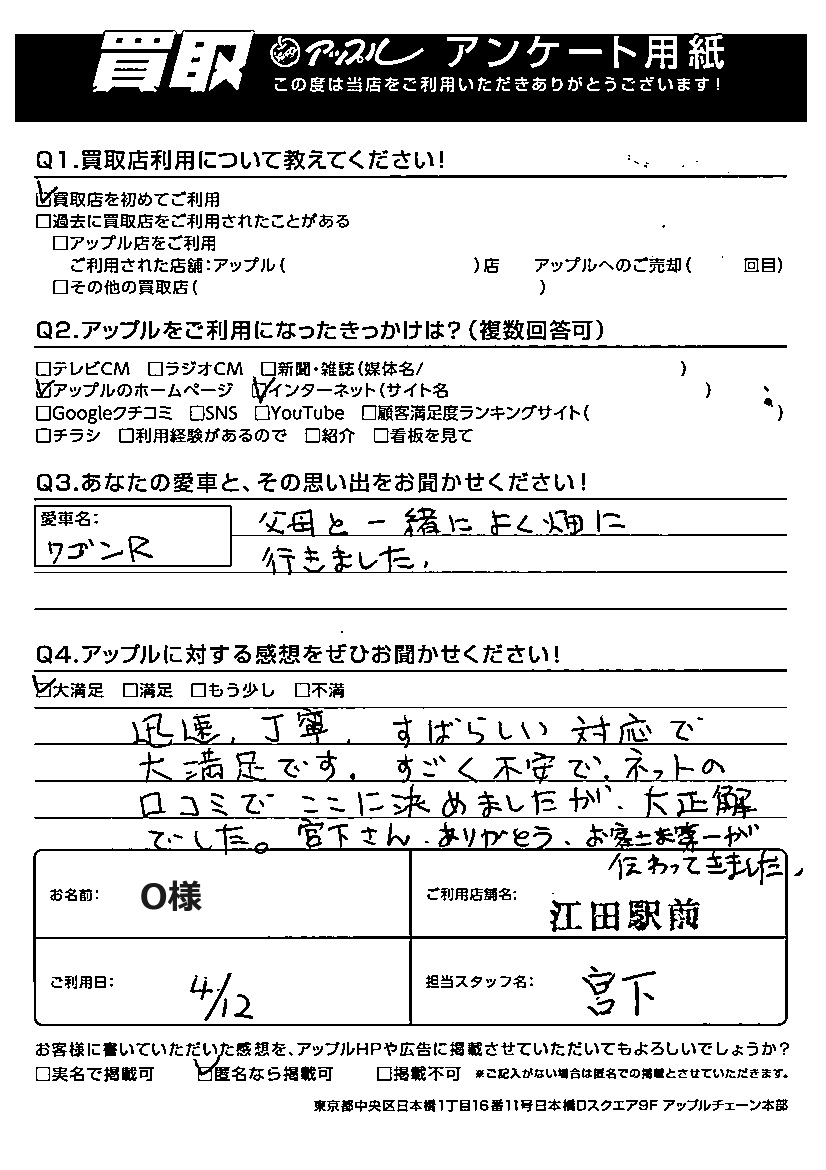 買取 アップル アンケート用紙
この度は当店をご利用いただきありがとうございます!
Q1.買取店利用について教えてください!
☑買取店を初めてご利用
□過去に買取店をご利用されたことがある
□アップル店をご利用
ご利用された店舗:アップル( )店 アップルへのご売却( 回目)
□その他の買取店( )
Q2.アップルをご利用になったきっかけは?(複数回答可)
□テレビCM □ラジオCM □新聞・雑誌(媒体名/ )
☑アップルのホームページ ☑インターネット(サイト名 )
□Googleクチコミ □SNS □YouTube □顧客満足度ランキングサイト( )
□チラシ □利用経験があるので □紹介 □看板を見て
Q3.あなたの愛車と、その思い出をお聞かせください!
愛車名:
ワゴンR
父母と一緒によく畑に
行きました。
Q4.アップルに対する感想をぜひお聞かせください!
☑大満足 □満足 □もう少し □不満
迅速、丁寧、すばらしい対応で
大満足です。すごく不安で、ネットの
口コミでここに決めましたが、大正解
でした。宮下さん、ありがとう、お客士お第一が
伝わってきました。
お名前: O様
ご利用店舗名: 江田駅前
ご利用日: 4/12
担当スタッフ名: 宮下
お客様に書いていただいた感想を、アップルHPや広告に掲載させていただいてもよろしいでしょうか?
□実名で掲載可 ☑匿名なら掲載可 □掲載不可 ※ご記入がない場合は匿名での掲載とさせていただきます。
東京都中央区日本橋1丁目16番11号日本橋Dスクエア9F アップルチェーン本部